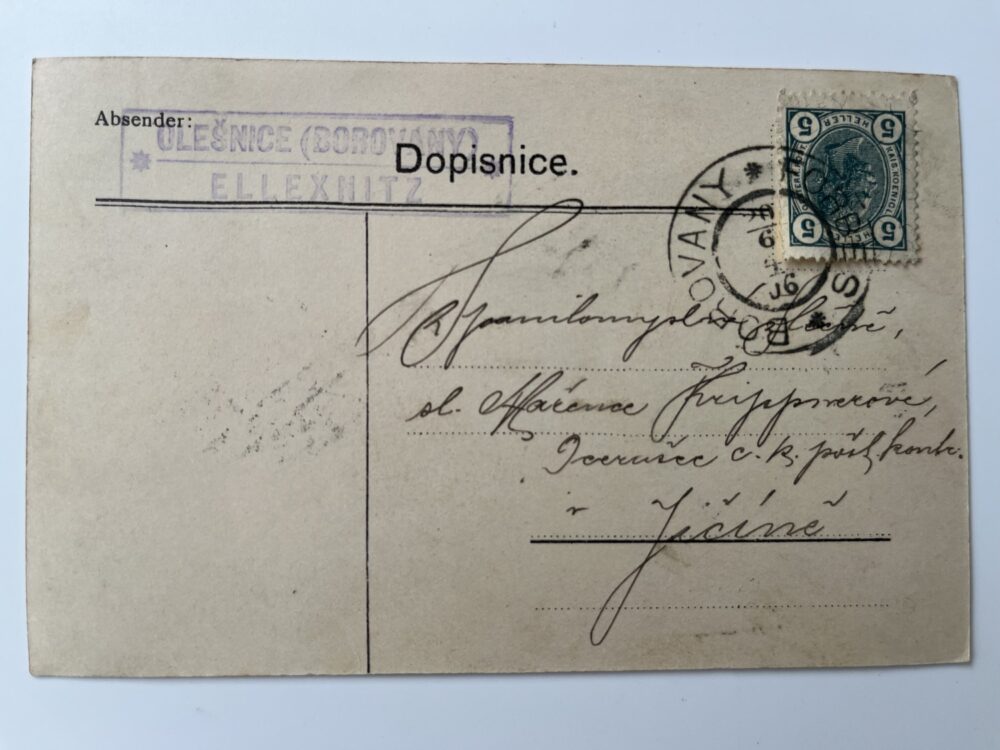 Absender:
OLEŠNICE (BOROVANY)
ELLEXNITZ
Dopisnice.
BOROVANY * FORBES *
20
6
06
5 HELLER 5
KAIS. KOENIGL.
5 HELLER 5
slečně,
sl. Mařence Krippnerové,
Dcerušce c. k. pošt. kontr.
v Jičíně